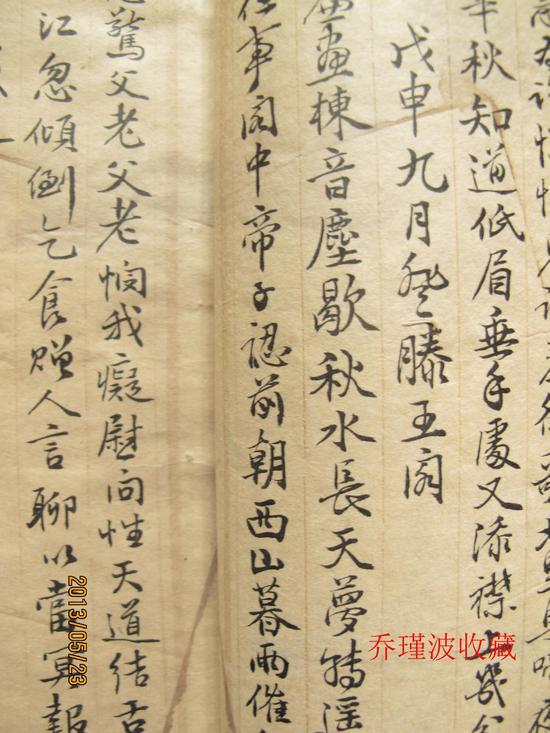 半秋知道低眉垂手處又添襟上幾分
戊申九月登滕王閣
畫棟音塵歇秋水長天夢轉遥
事閣中帝子認前朝西山暮雨催
驚父老父老憫我癡慰向性天道結舌
江忽傾倒乞食贈人言聊以當冥報
乔瑾波收藏
2013/05/23